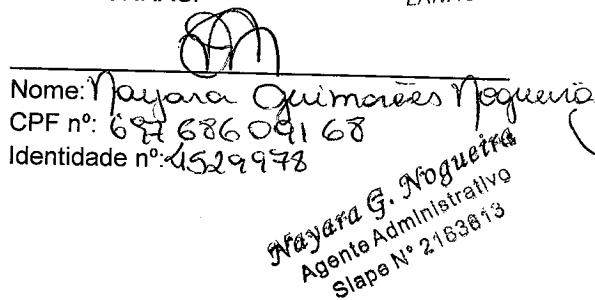 Nome: Nayara Guimarães Nogueira
CPF nº: 697 686 091 68
Identidade nº: 4529978
Nayara G. Nogueira
Agente Administrativo
Siape Nº 2163613